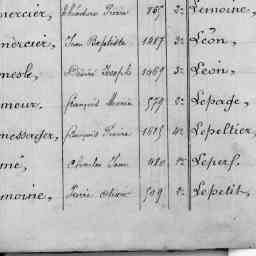 mercier, Théodore Pierre 865 2e Lemoine,
mercier, Jean Baptiste 1487 3e Léon,
mesle, Désiré Joseph 1469 3e Léon,
meur. françois Marie 579 2e Lepage,
messager, françois Pierre 1615 4e Lepeltier,
mé, Charles Jean 480 1e Lepers.
moine, Pierre 509 2e Lepetit,